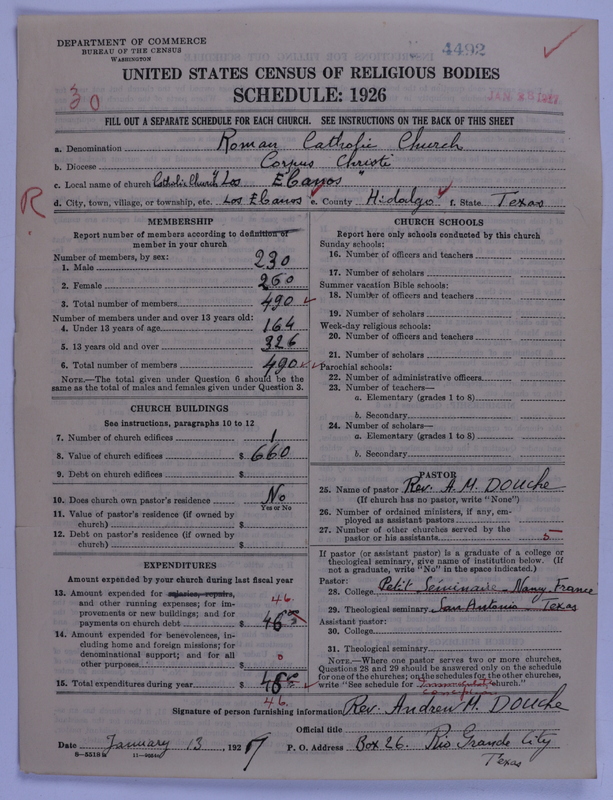 DEPARTMENT OF COMMERCE
BUREAU OF THE CENSUS
WASHINGTON
4492
UNITED STATES CENSUS OF RELIGIOUS BODIES
SCHEDULE: 1926
30
JAN 28 1927
FILL OUT A SEPARATE SCHEDULE FOR EACH CHURCH. SEE INSTRUCTIONS ON THE BACK OF THIS SHEET
a. Denomination Roman Catholic Church
b. Diocese Corpus Christi
c. Local name of church Catholic Church "Los Ebanos"
R
d. City, town, village, or township, etc. Los Ebanos e. County Hidalgo f. State Texas
MEMBERSHIP
Report number of members according to definition of member in your church
Number of members, by sex:
1. Male 230
2. Female 260
3. Total number of members 490
Number of members under and over 13 years old:
4. Under 13 years of age 164
5. 13 years old and over 326
6. Total number of members 490
NOTE.—The total given under Question 6 should be the
same as the total of males and females given under Question 3.
CHURCH BUILDINGS
See instructions, paragraphs 10 to 12
7. Number of church edifices 1
8. Value of church edifices $ 660
9. Debt on church edifices $
10. Does church own pastor's residence No
Yes or No
11. Value of pastor's residence (if owned by
church) $
12. Debt on pastor's residence (if owned by
church) $
EXPENDITURES
Amount expended by your church during last fiscal year
13. Amount expended for salaries, repairs,
and other running expenses; for im-
provements or new buildings; and for
payments on church debt $ 46.
14. Amount expended for benevolences, in-
cluding home and foreign missions; for
denominational support; and for all
other purposes $ 0
15. Total expenditures during year $
46.
CHURCH SCHOOLS
Report here only schools conducted by this church
Sunday schools:
16. Number of officers and teachers
17. Number of scholars
Summer vacation Bible schools:
18. Number of officers and teachers
19. Number of scholars
Week-day religious schools:
20. Number of officers and teachers
21. Number of scholars
Parochial schools:
22. Number of administrative officers
23. Number of teachers—
a. Elementary (grades 1 to 8)
b. Secondary
24. Number of scholars—
a. Elementary (grades 1 to 8)
b. Secondary
PASTOR
25. Name of pastor Rev. A. M. Douche
(If church has no pastor, write "None")
26. Number of ordained ministers, if any, em-
ployed as assistant pastors
27. Number of other churches served by the
pastor or his assistants 5
If pastor (or assistant pastor) is a graduate of a college or
theological seminary, give name of institution below. (If
not a graduate, write "No" in the space indicated.)
Pastor:
28. College Petit Séminaire - Nancy France
29. Theological seminary San Antonio - Texas
Assistant pastor:
30. College
31. Theological seminary
NOTE.—Where one pastor serves two or more churches,
Questions 28 and 29 should be answered only on the schedule
for one of the churches; on the schedules for the other churches,
write "See schedule for Immaculate church."
Conception
Signature of person furnishing information Rev. Andrew M. Douche
Official title
Date January 13, 1927 P. O. Address Box 26. Rio Grande City
Texas